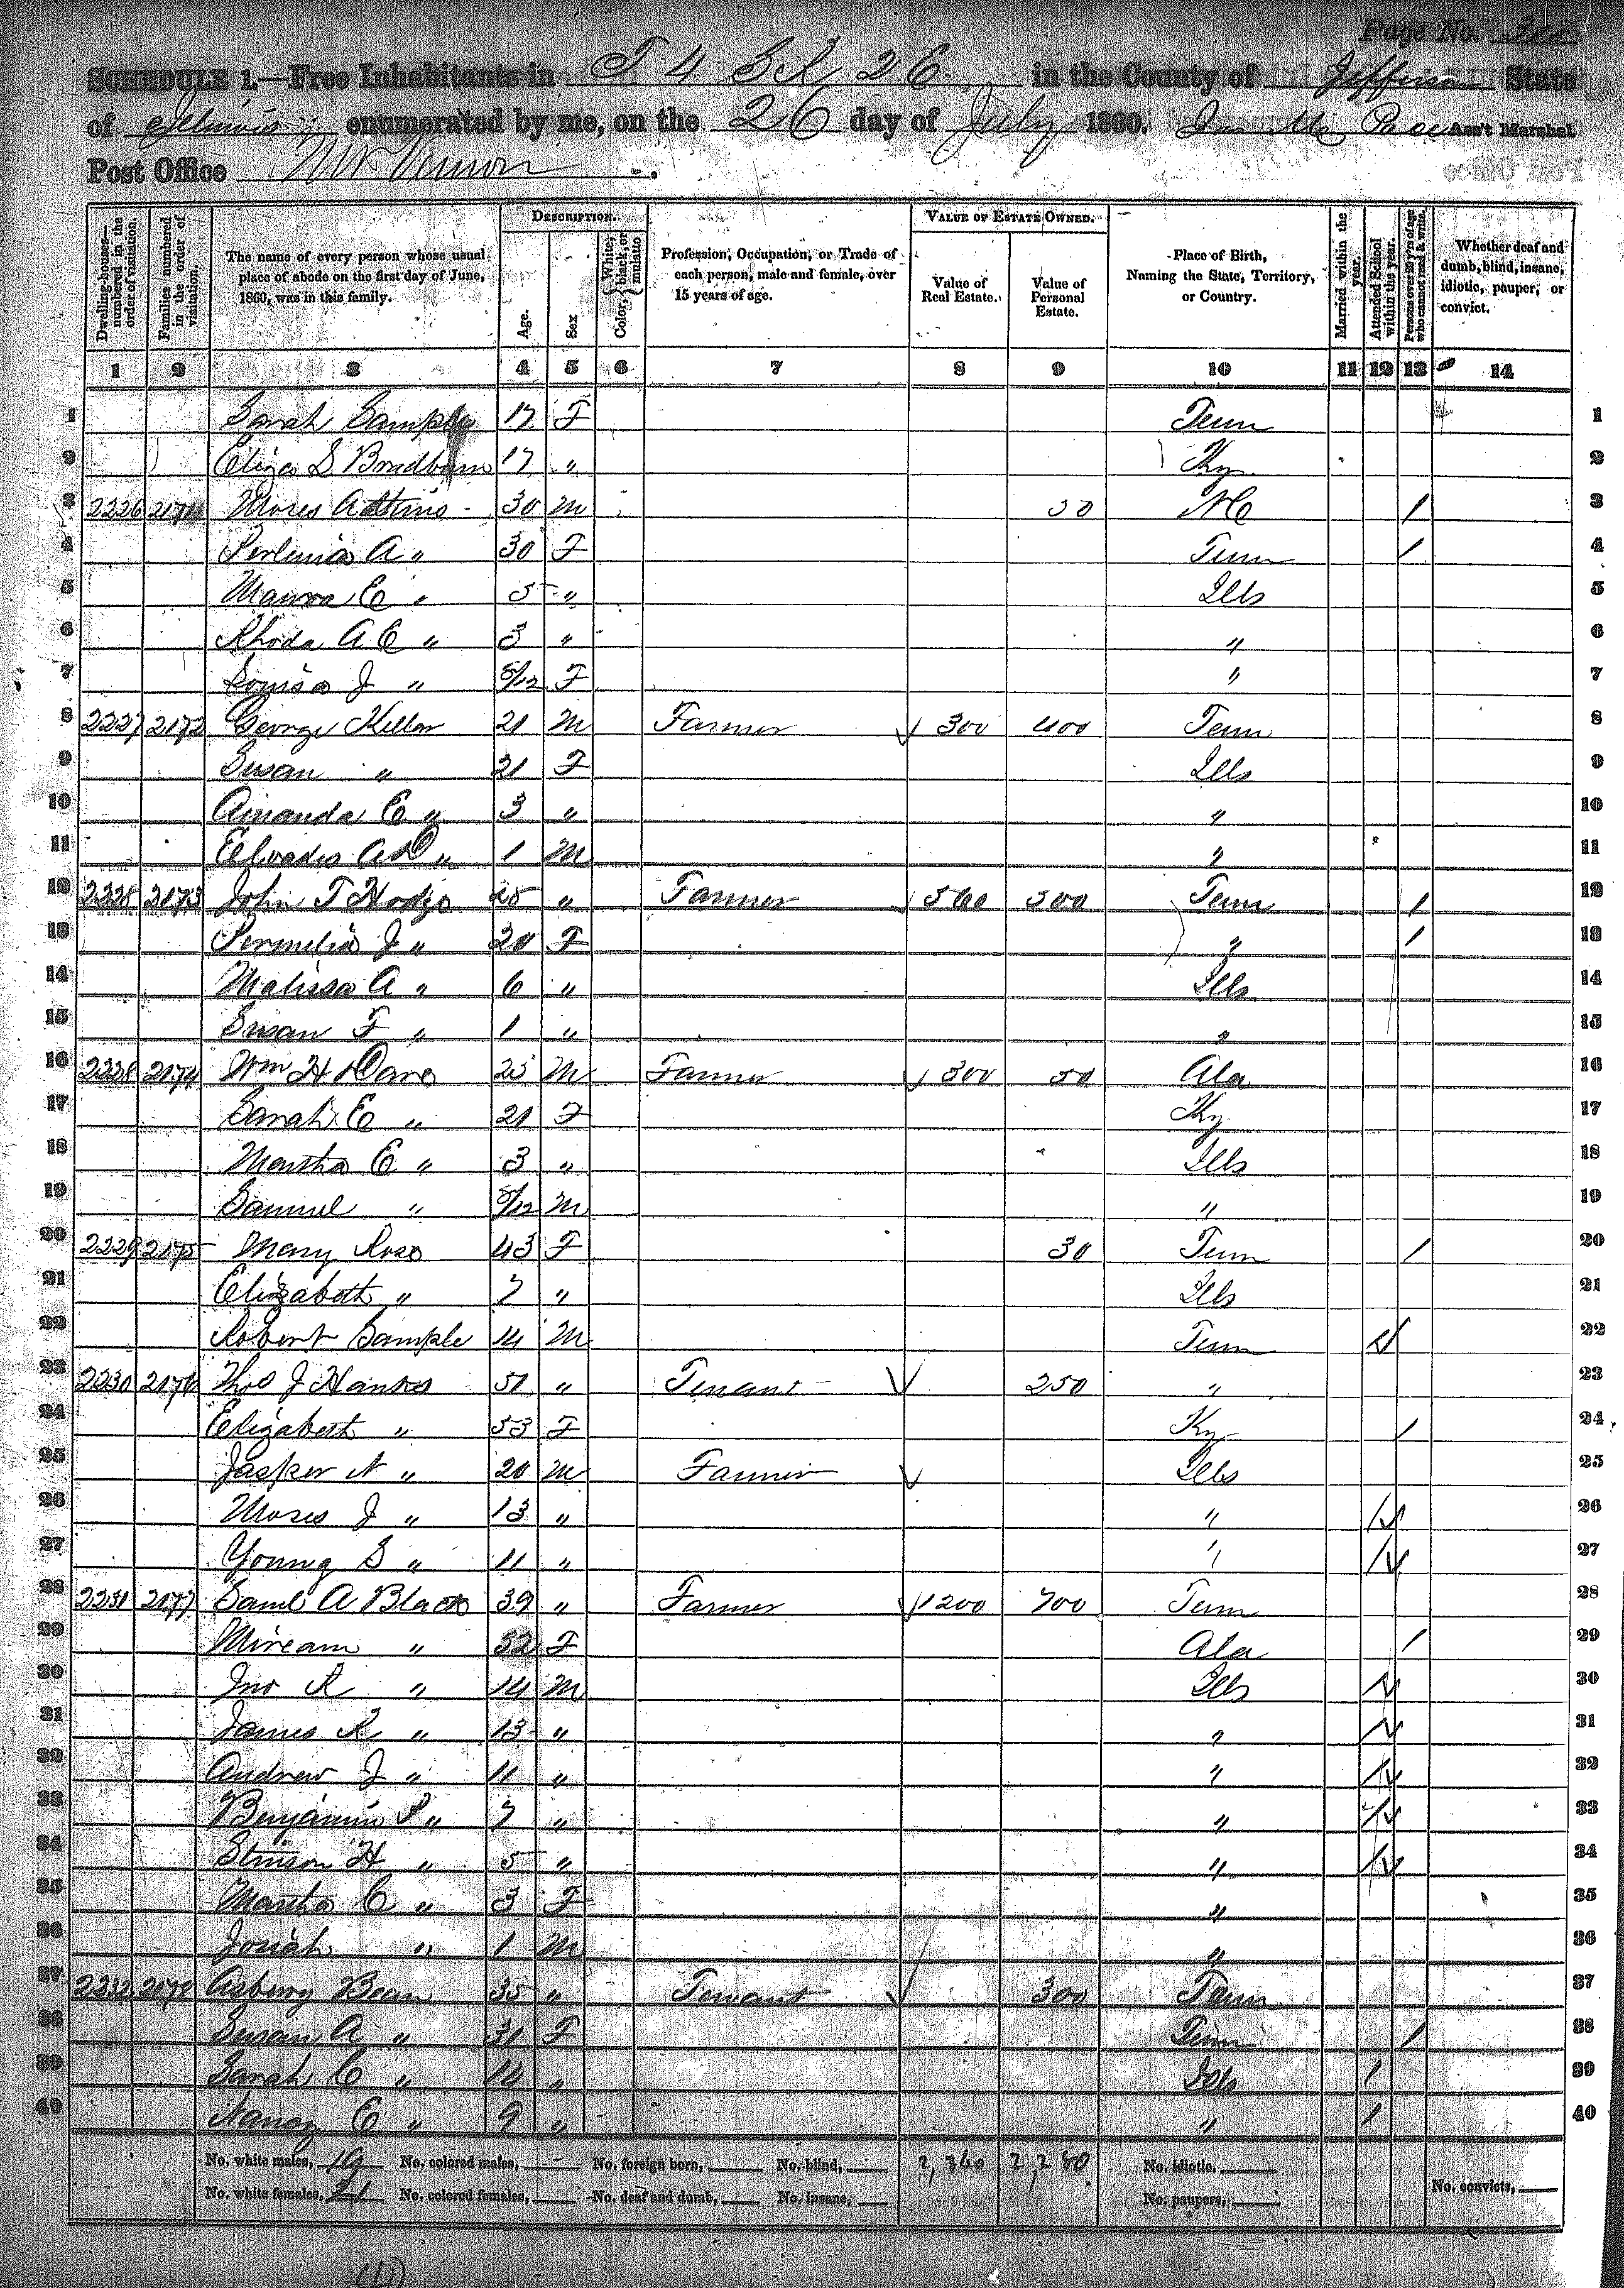 Page No. 300
SCHEDULE 1.—Free Inhabitants in T 4 S R 2 E in the County of Jefferson State
of Illinois enumerated by me, on the 26 day of July 1860. Ass't Marshal
Post Office Mt Vernon
DESCRIPTION. VALUE OF ESTATE OWNED.
Dwelling-houses—numbered in the order of visitation. Families numbered in the order of visitation. The name of every person whose usual place of abode on the first day of June, 1860, was in this family. Age. Sex Color, { White, black, or mulatto Profession, Occupation, or Trade of each person, male and female, over 15 years of age. Value of Real Estate. Value of Personal Estate. Place of Birth, Naming the State, Territory, or Country. Married within the year. Attended School within the year. Persons over 20 y'rs of age who cannot read & write. Whether deaf and dumb, blind, insane, idiotic, pauper, or convict.
1 2 3 4 5 6 7 8 9 10 11 12 13 14
1 Sarah Sample 17 F Tenn 1
2 Eliza S Bradburn 17 " Ky 2
3 2226 2171 Moses 30 M 50 NC / 3
4 A " 30 F Tenn / 4
5 E " 5 " Ills 5
6 Rhoda A C " 3 " " 6
7 Louisa J " 5/12 F " 7
8 2227 2172 George Keller 21 M Farmer 300 400 Tenn 8
9 Susan " 21 F Ills 9
10 Amanda E " 3 " " 10
11 " 1 M " 11
12 2228 2173 John T Hodge 25 " Farmer 560 500 Tenn / 12
13 Permelia J " 20 F " / 13
14 Malissa A " 6 " Ills 14
15 Susan F " 1 " " 15
16 2228 2174 Wm H Dare 25 M Farmer 300 50 Ala 16
17 Sarah E " 21 F Ky 17
18 Martha E " 3 " Ills 18
19 Samuel " 5/12 M " 19
20 2229 2175 Mary Rose 43 F 30 Tenn / 20
21 Elizabeth " 7 " Ills 21
22 Robert Sample 14 M Tenn / 22
23 2230 2176 Thos J Hanks 51 " Tenant 250 " 23
24 Elizabeth " 53 F Ky / 24
25 Jasper N " 20 M Farmer Ills 25
26 Moses J " 13 " " / 26
27 Young S " 11 " " / 27
28 2231 2177 Saml A Black 39 " Farmer 1200 700 Tenn 28
29 Miream " 32 F Ala / 29
30 Jno R " 14 M Ills / 30
31 James K " 13 " " / 31
32 Andrew J " 11 " " / 32
33 Benjamin S " 7 " " / 33
34 Stinson H " 5 " " / 34
35 Martha C " 3 F " 35
36 Josiah " 1 M " 36
37 2232 2178 Asbury Bean 35 " Tenant 300 Tenn 37
38 Susan A " 31 F Tenn / 38
39 Sarah C " 14 " Ills / 39
40 Nancy E " 9 " " / 40
No. white males, 19 No. colored males, No. foreign born, No. blind, 2,360 2,280 No. idiotic.
No. white females, 21 No. colored females, No. deaf and dumb, No. insane, No. paupers, No. convicts,